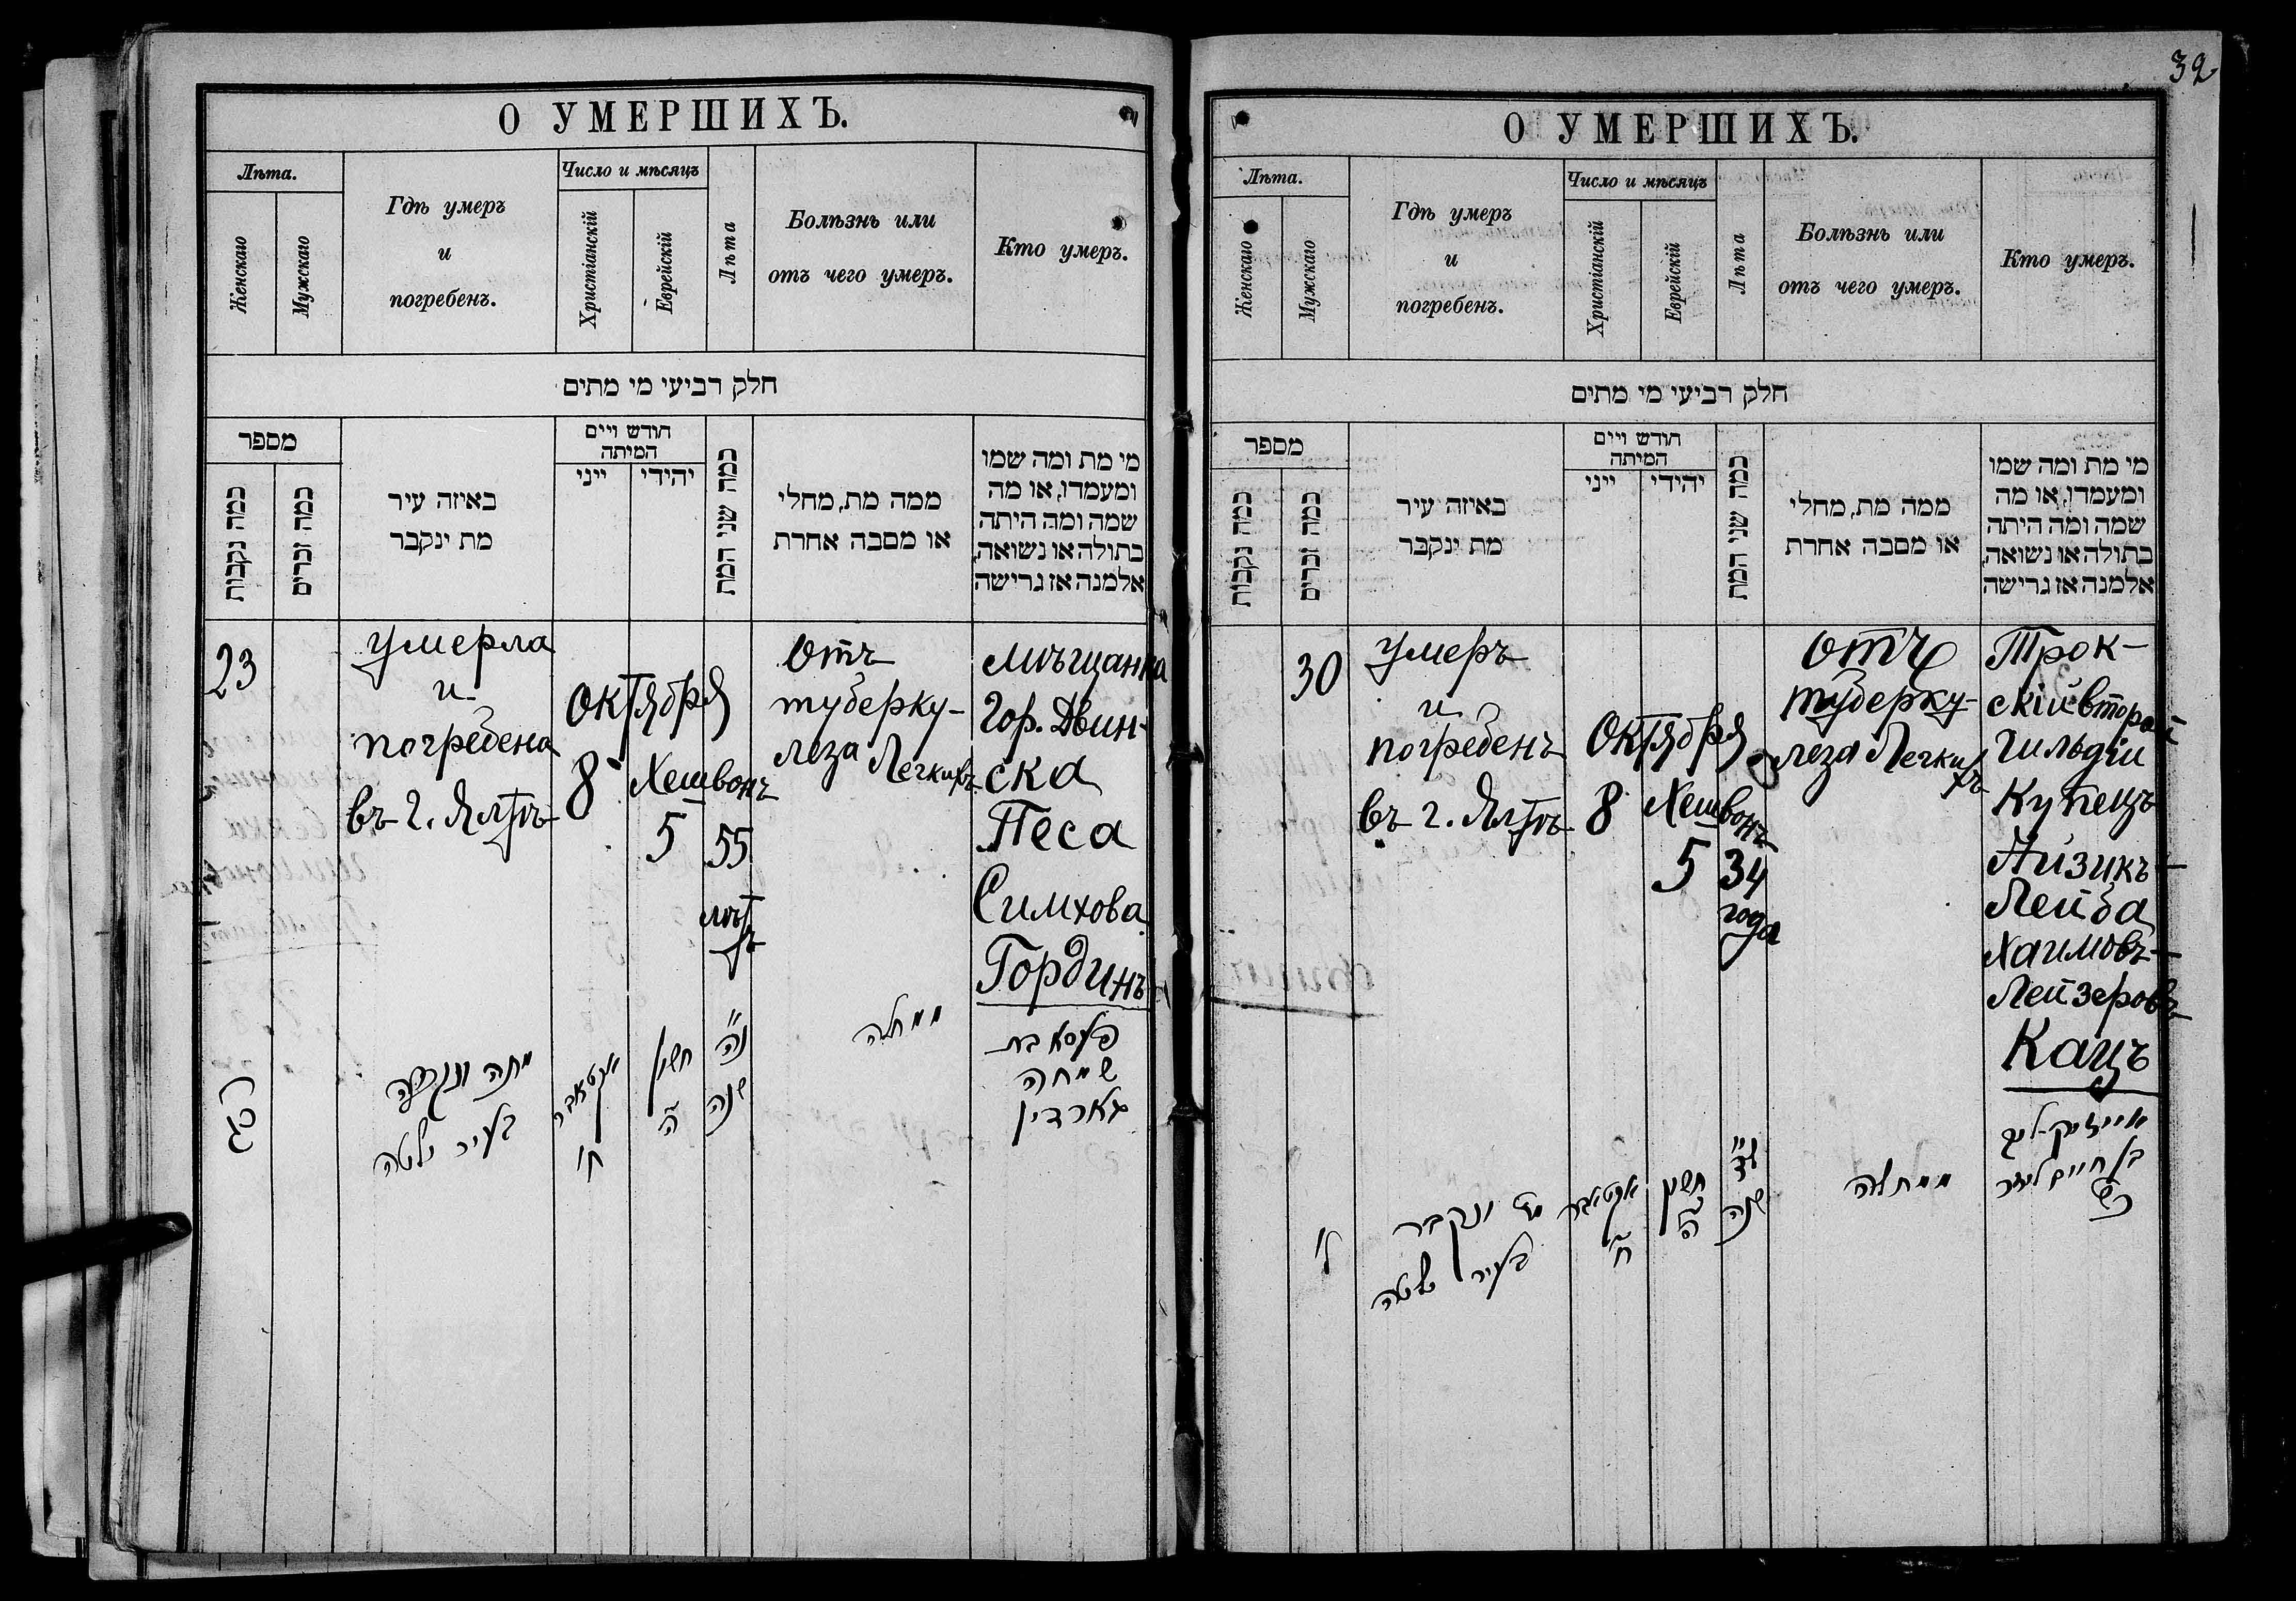 О УМЕРШИХЪ.
Лѣта.
Женскаго
Мужскаго
Гдѣ умеръ
и
погребенъ.
Число и мѣсяцъ
Христіанскій
Еврейскій
Лѣта
Болѣзнь или
отъ чего умеръ.
Кто умеръ.
חלק רביעי מי מתים
מספר
כמה נקבות
כמה זכרים
באיזה עיר
מת ינקבר
חודש ויים
המיתה
ייני
יהידי
כמה שני המת
ממה מת, מחלי
או מסבה אחרת
מי מת ומה שמו
ומעמדו, או מה
שמה ומה היתה
בתולה או נשואה,
אלמנה אז גרישה
23
умерла
и
погребена
въ г. Ялтѣ
октября
8
Хешвонъ
5
55
лѣтъ
Отъ
туберку-
леза Легкихъ
Мѣщанка
Гор. Двин-
ска
Песа
Симхова
Гординъ
כג
מתה ונקברה
בעיר ילטה
אקטאבר
ח'
חשון
ה
נ"ה
שנה
ממחלה
פעסא בת
שמחה
גארדין
32
О УМЕРШИХЪ.
Лѣта.
Женскаго
Мужскаго
Гдѣ умеръ
и
погребенъ.
Число и мѣсяцъ
Христіанскій
Еврейскій
Лѣта
Болѣзнь или
отъ чего умеръ.
Кто умеръ.
חלק רביעי מי מתים
מספר
כמה נקבות
כמה זכרים
באיזה עיר
מת ינקבר
חודש ויים
המיתה
ייני
יהידי
כמה שני המת
ממה מת, מחלי
או מסבה אחרת
מי מת ומה שמו
ומעמדו, או מה
שמה ומה היתה
בתולה או נשואה,
אלמנה אז גרישה
30
умеръ
и
погребенъ
въ г. Ялтѣ
Октября
8
Хешвонъ
5
34
года
отъ
туберку-
леза Легкихъ
Трок-
скій второй
Гильдіи
Купецъ
Айзикъ-
Лейба
Хаимовъ-
Лейзеровъ
Кацъ
ל'
מת ונקבר
בעיר ילטה
אקטאבר
ח'
חשון
ה
ל"ד
שנה
ממחלה
אייזיק-ליב
בן חיים ליזר
כץ